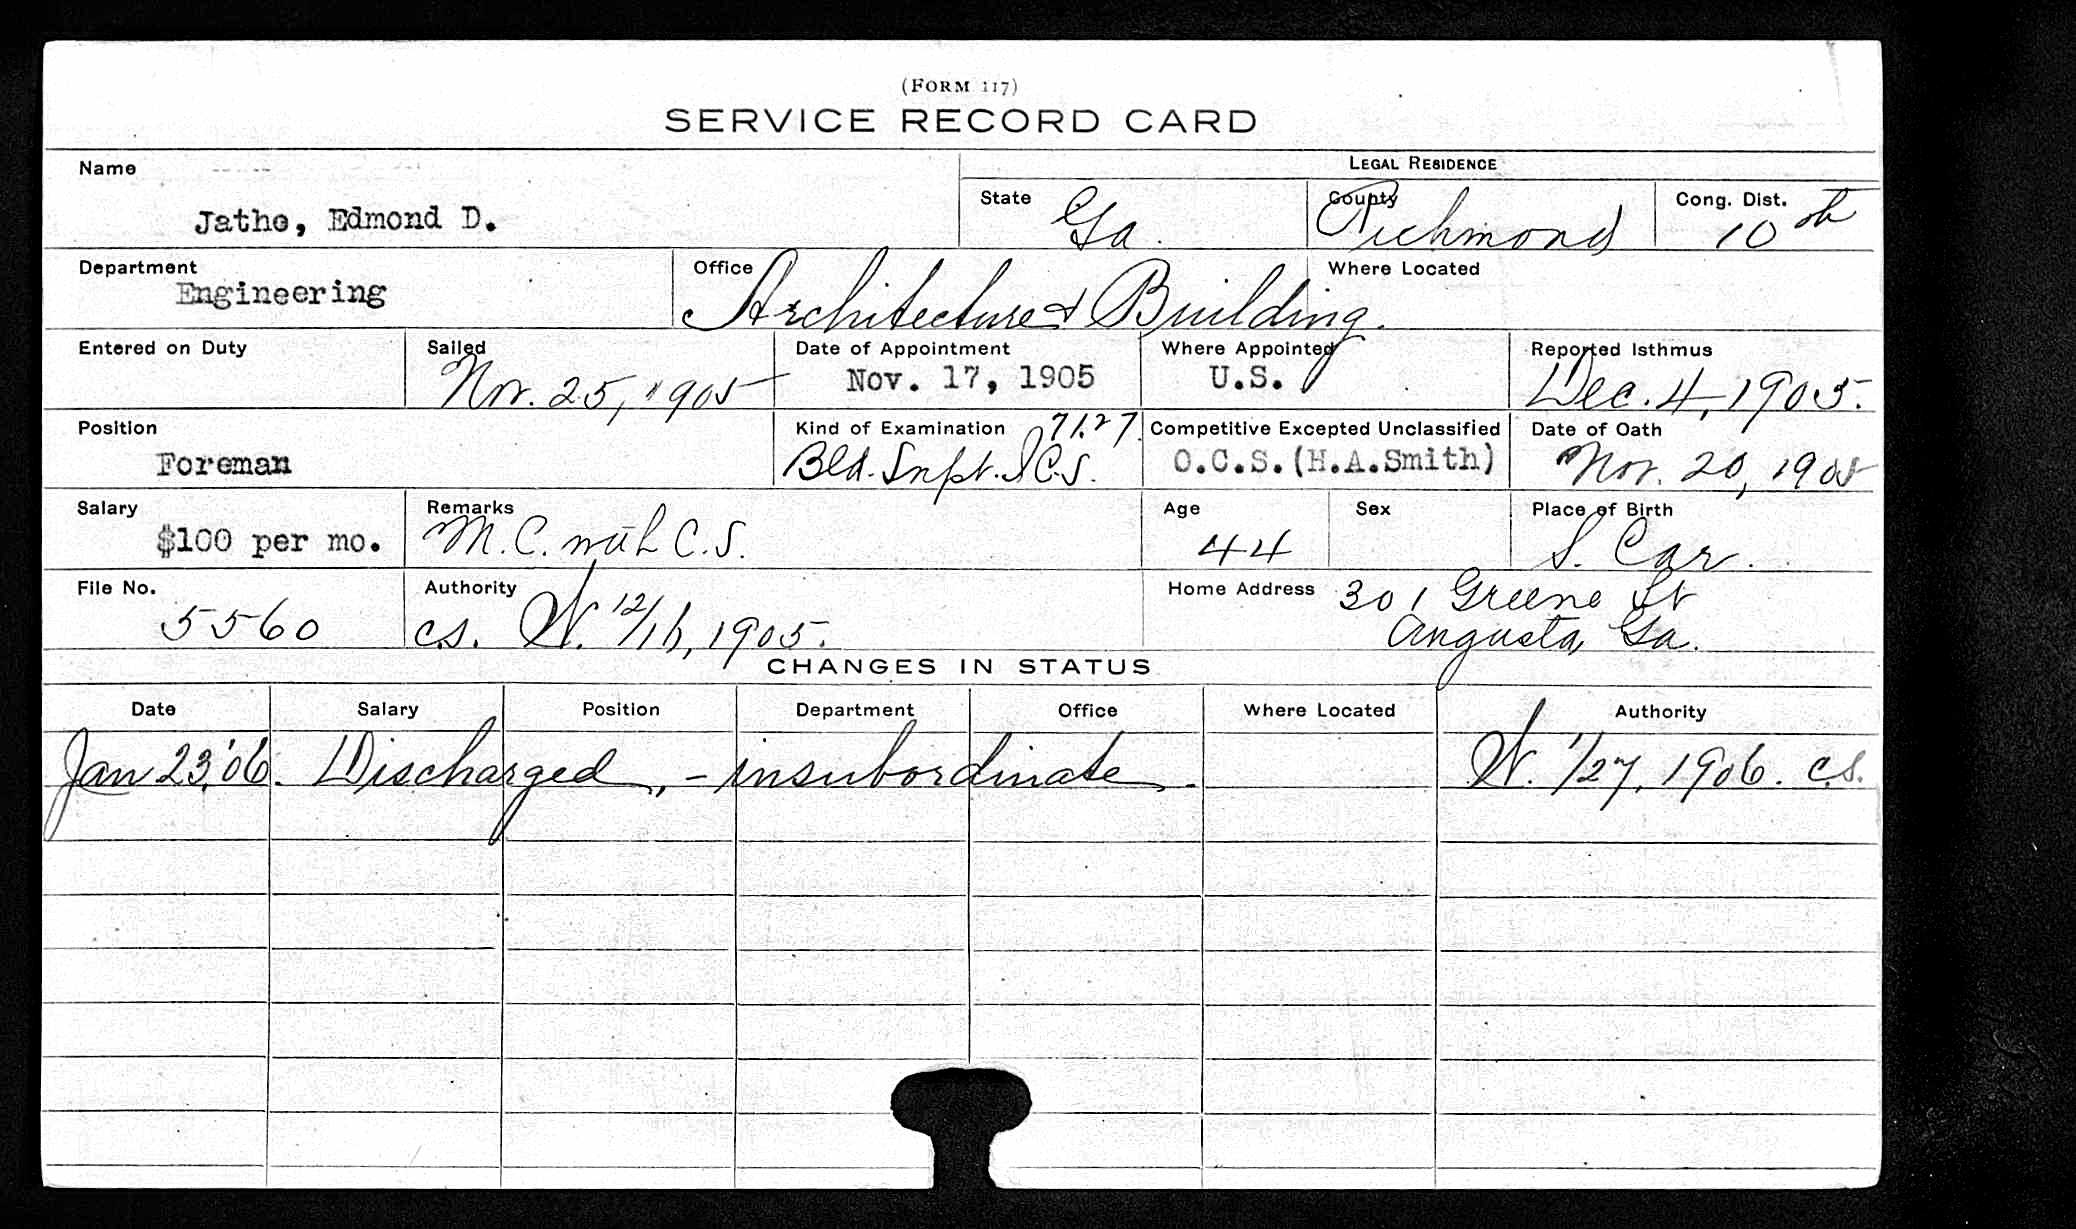 (FORM 117)
SERVICE RECORD CARD
Name
LEGAL RESIDENCE
Jathe, Edmond D.
State Ga.
County Richmond
Cong. Dist. 10th
Department Engineering
Office Architecture & Building.
Where Located
Entered on Duty
Sailed Nov. 25, 1905
Date of Appointment Nov. 17, 1905
Where Appointed U.S.
Reported Isthmus Dec. 4, 1905.
Position Foreman
Kind of Examination 71.27
Bld. Inspt. I C.S.
Competitive Excepted Unclassified
O.C.S.(H.A.Smith)
Date of Oath Nov. 20, 1905
Salary $100 per mo.
Remarks M.C. with C.S.
Age 44
Sex
Place of Birth S. Car.
File No. 5560
Authority
C.S. W. 12/16, 1905.
Home Address 301 Greene St
Augusta, Ga.
CHANGES IN STATUS
Date Salary Position Department Office Where Located Authority
Jan 23,'06. Discharged, - insubordinate. W. 1/27, 1906. C.S.